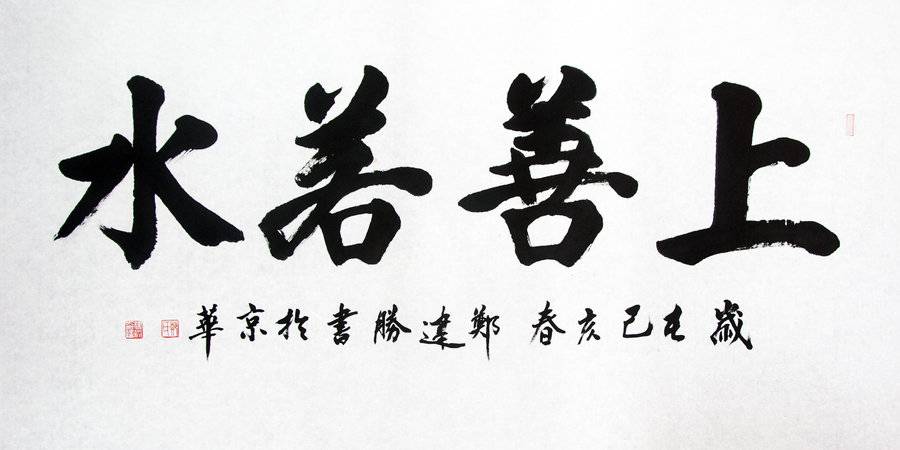 上善若水
歲在己亥春鄭建勝書於京華